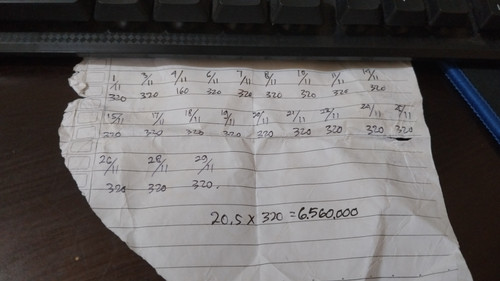 1/11 3/11 4/11 6/11 7/11 8/11 10/11 11/11 14/11
320 320 160 320 320 320 320 320 320
15/11 17/11 18/11 19/11 20/11 21/11 24/11 25/11
320 320 320 320 320 320 320 320 320
26/11 28/11 29/11
320 320 320.
20.5 X 320 = 6.560.000